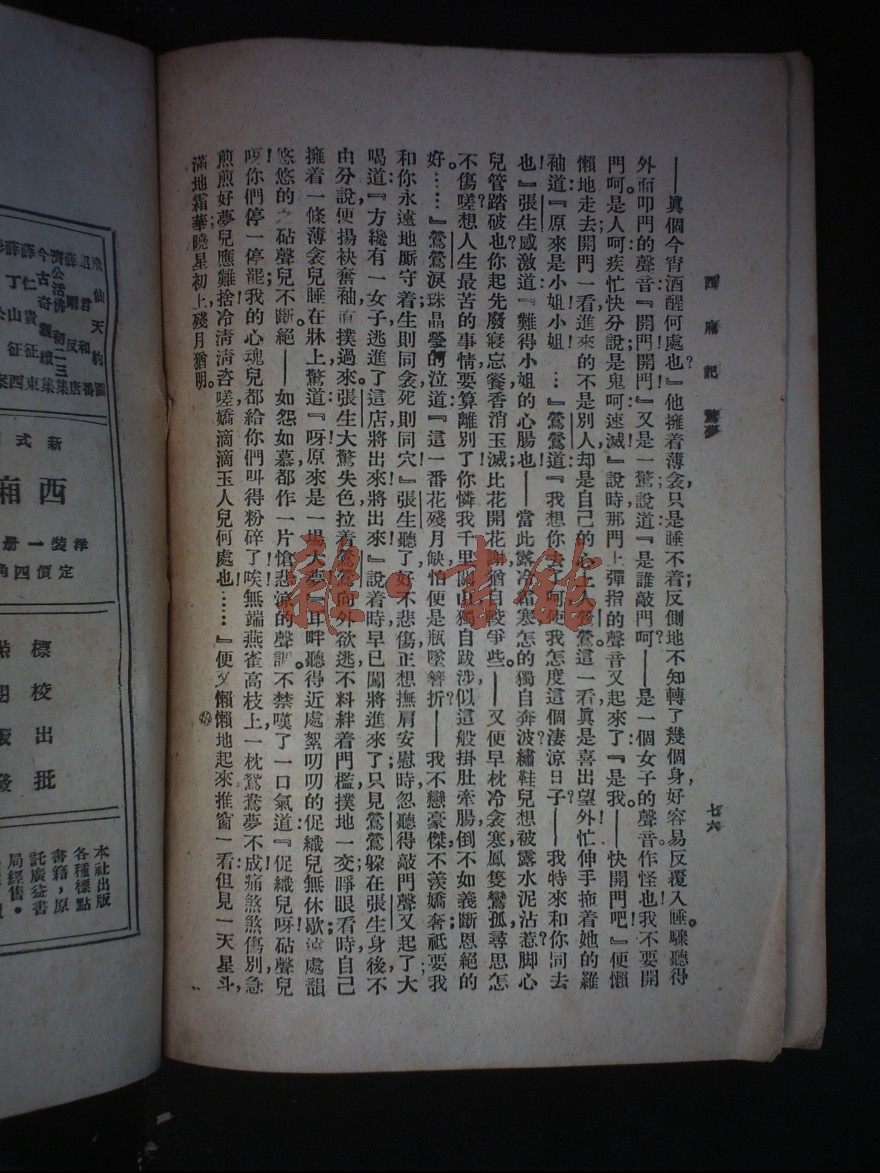 西廂記 驚夢
七六
——眞個今宵酒醒何處也』他擁着薄衾,只是睡不着;反側地不知轉了幾個身,好容易反覆入睡。驟聽得
外面叩門的聲音『開門!開門!』又是一驚,說道:『是誰敲門呵?——是一個女子的聲音,作怪也!我不要開
門。呵!是人呵,疾忙快分說;是鬼呵,速滅!』說時那門上彈指的聲音又起來了:『是我——快開門吧!』便懶
懶地走去開門一看,進來的不是別人,却是自己的心上人鶯鶯。這一看眞是喜出望外,忙伸手拖着她的羅
袖道:『原來是小姐!小姐!…』鶯鶯道:『我想你去了呵,使我怎度這個淒涼日子?——我特來和你同去
也!』張生感激道:『難得小姐的心腸也!——當此露冷霜寒,怎的獨自奔波?繡鞋兒想被露水泥沾惹,脚心
兒管踏破也!你起先廢寢忘餐,香消玉減,比花開花謝,猶自較爭些。——又便早枕冷衾寒,鳳隻鸞孤,尋思怎
不傷嗟?想人生最苦的事情,要算離別了。你憐我千里關山,獨自跋涉,似這般掛肚牽腸,倒不如義斷恩絕的
好。……』鶯鶯淚珠晶瑩的泣道:『這一番花殘月缺,怕便是瓶墜簪折。——我不戀豪傑,不羨嬌奢,祇要我
和你永遠地脈守着,生則同衾,死則同穴!』張生聽了,好不悲傷,正想撫肩安慰時,忽聽得敲門聲又起了,大
喝道:『方纔有一女子,逃進了這店,將出來!將出來!』說着時,早已闖將進來了。只見鶯鶯躲在張生身後,不
由分說,便揚袂奮袖,直撲過來。張生大驚失色,拉着鶯鶯向外欲逃,不料絆着門檻,撲地一交,睜眼看時,自己
擁着一條薄衾兒睡在牀上,驚道:『呀!原來是一場大夢!』耳畔聽得近處絮叨叨的促織兒無休歇;遠處韻
悠悠的之砧聲兒不斷絕——如怨如慕,都作一片愴悲涼的聲調。不禁嘆了一口氣道:『促織兒呀!砧聲兒
呀!你們停一停罷!我的心魂兒都給你們叫得粉碎了!唉!無端燕雀高枝上,一枕鴛鴦夢不成。痛煞煞傷別,急
煎煎好夢兒應難捨;冷清清咨嗟,嬌滴滴玉人兒何處也!……』便又懶懶地起來推窗一看,但見一天星斗,
滿地霜華,曉星初上,殘月猶明。
雜·書館
飛仙天豹圖
今古奇觀
濟公活佛初二三集
薛仁貴征東
薛丁山征西
新式
西廂
洋裝一册
定價四角
標
校
出
批
發
本社出版
各種標點
書籍,原
託廣益書
局經售。